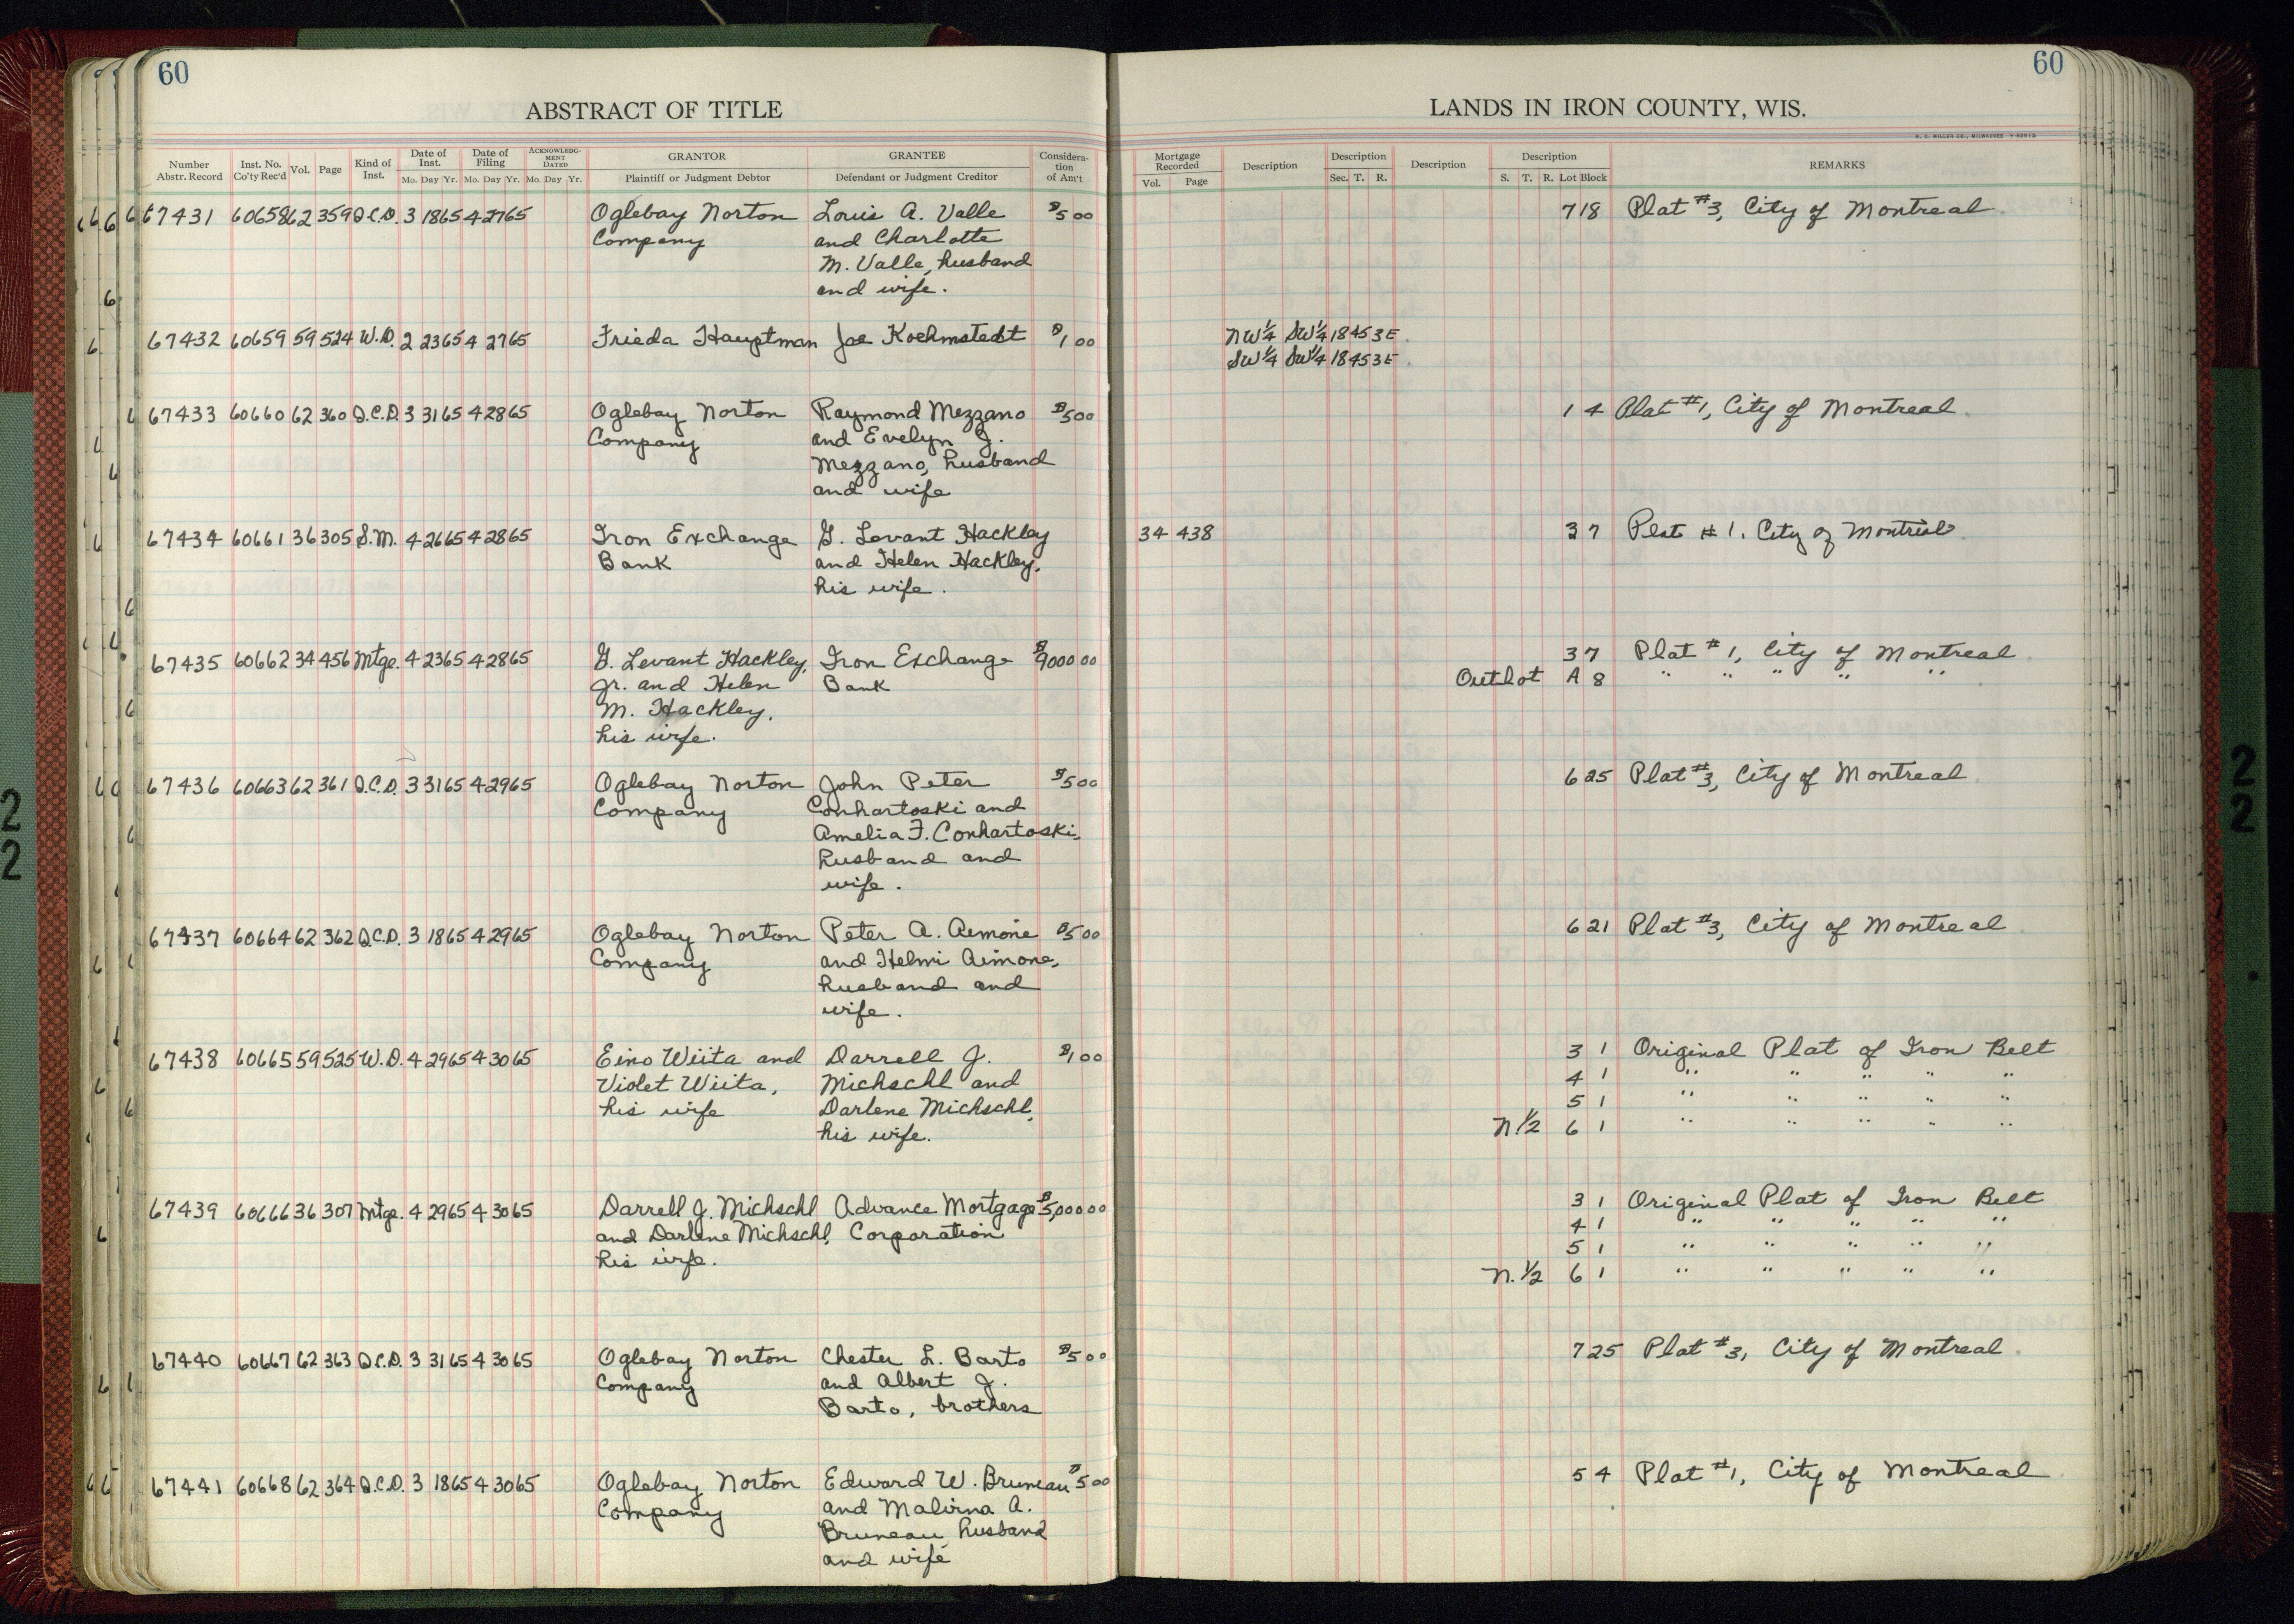 60
60
ABSTRACT OF TITLE
LANDS IN IRON COUNTY, WIS.
Number Abstr. Record Inst. No. Co'ty Rec'd Vol. Page Kind of Inst. Date of Inst. Mo. Day Yr. Date of Filing Mo. Day Yr. ACKNOWLEDGMENT DATED Mo. Day Yr. GRANTOR Plaintiff or Judgment Debtor GRANTEE Defendant or Judgment Creditor Consideration of Am't
Mortgage Recorded Vol. Page Description Description Sec. T. R. Description Description S. T. R. Lot Block REMARKS
67431 60658 62 359 Q.C.D. 3 18 65 4 27 65 Oglebay Norton Louis A. Valle $5 00 7 18 Plat #3, City of Montreal
Company and Charlotte
M. Valle, husband
and wife.
67432 60659 59 524 W.D. 2 23 65 4 27 65 Frieda Hauptman Joe Koehmstedt $1 00 NW 1/4 SW 1/4 18 45 3E
SW 1/4 SW 1/4 18 45 3E
67433 60660 62 360 Q.C.D. 3 31 65 4 28 65 Oglebay Norton Raymond Mezzano $5 00 1 4 Plat #1, City of Montreal
Company and Evelyn J.
Mezzano, husband
and wife
67434 60661 36 305 S.M. 4 26 65 4 28 65 Iron Exchange G. Levant Hackley 34 438 3 7 Plat #1, City of Montreal
Bank and Helen Hackley,
his wife.
67435 60662 34 456 Mtge. 4 23 65 4 28 65 G. Levant Hackley, Iron Exchange $9000 00 3 7 Plat #1, City of Montreal
Jr. and Helen Bank Outlot A 8 " " " " "
M. Hackley,
his wife.
67436 60663 62 361 Q.C.D. 3 31 65 4 29 65 Oglebay Norton John Peter $5 00 6 25 Plat #3, City of Montreal
Company Conhartoski and
Amelia F. Conhartoski,
husband and
wife.
67437 60664 62 362 Q.C.D. 3 18 65 4 29 65 Oglebay Norton Peter A. Aimone $5 00 6 21 Plat #3, City of Montreal
Company and Helmi Aimone,
husband and
wife.
67438 60665 59 525 W.D. 4 29 65 4 30 65 Eino Wiita and Darrell J. $1 00 3 1 Original Plat of Iron Belt
Violet Wiita, Michschl and 4 1 " " " " "
his wife Darlene Michschl, 5 1 " " " " "
his wife. N. 1/2 6 1 " " " " "
67439 60666 36 307 Mtge. 4 29 65 4 30 65 Darrell J. Michschl Advance Mortgage $5,000 00 3 1 Original Plat of Iron Belt
and Darlene Michschl, Corporation 4 1 " " " " "
his wife. 5 1 " " " " "
N. 1/2 6 1 " " " " "
67440 60667 62 363 Q.C.D. 3 31 65 4 30 65 Oglebay Norton Chester L. Barto $5 00 7 25 Plat #3, City of Montreal
Company and Albert J.
Barto, brothers
67441 60668 62 364 Q.C.D. 3 18 65 4 30 65 Oglebay Norton Edward W. Bruneau $5 00 5 4 Plat #1, City of Montreal
Company and Malvina A.
Bruneau, husband
and wife